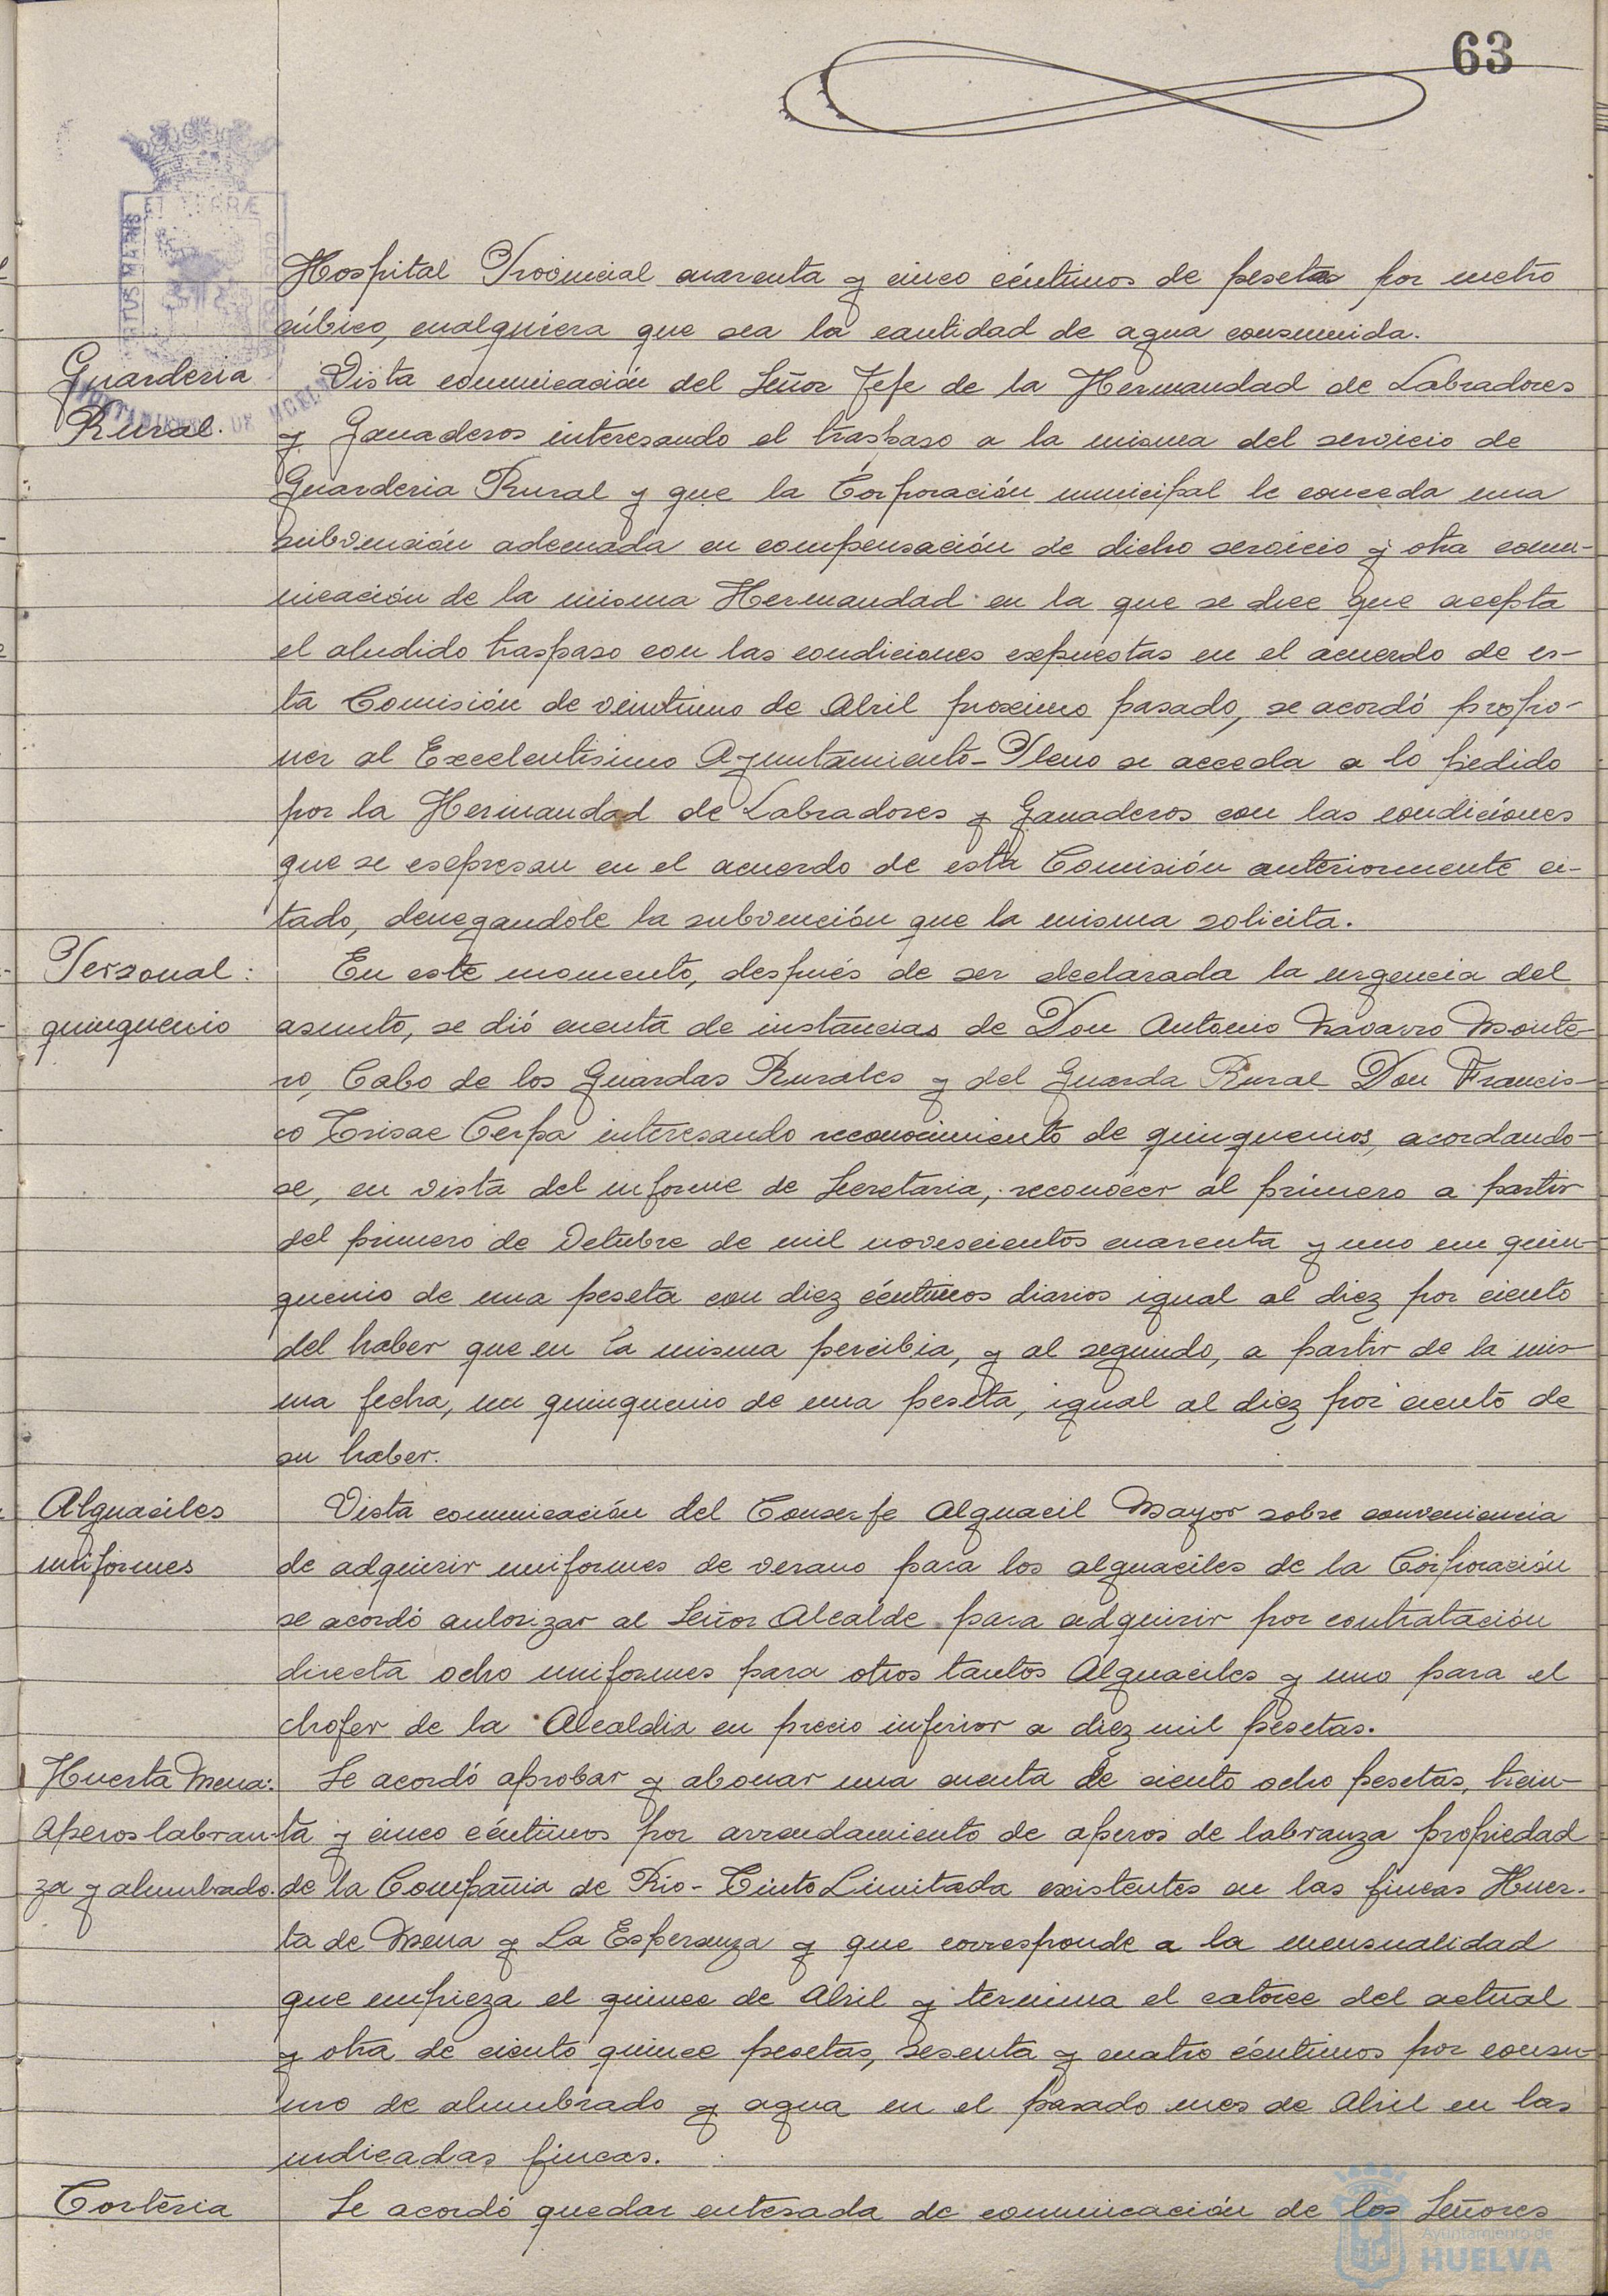 63
Hospital Provincial cuarenta y cinco céntimos de peseta por metro
cúbico, cualquiera que sea la cantidad de agua consumida.
Guarderia
Rural.
Vista comunicación del Señor Jefe de la Hermandad de Labradores
y Ganaderos interesando el traspaso a la misma del servicio de
Guarderia Rural y que la Corporación municipal le conceda una
subvención adecuada en compensación de dicho servicio y otra comu-
nicación de la misma Hermandad en la que se dice que acepta
el aludido traspaso con las condiciones expuestas en el acuerdo de es-
ta Comisión de veintiuno de Abril proximo pasado, se acordó propo-
ner al Excelentisimo Ayuntamiento-Pleno se acceda a lo pedido
por la Hermandad de Labradores y Ganaderos con las condiciones
que se expresan en el acuerdo de esta Comisión anteriormente ci-
tado, denegandole la subvención que la misma solicita.
Personal:
quinquenio
En este momento, después de ser declarada la urgencia del
asunto, se dió cuenta de instancias de Don Antonio Navarro Monte-
ro, Cabo de los Guardas Rurales y del Guarda Rural Don Francis-
co Cerpa interesando reconocimiento de quinquenios, acordando-
se, en vista del informe de Secretaria, reconocer al primero a partir
del primero de Octubre de mil novecientos cuarenta y uno un quin-
quenio de una peseta con diez céntimos diarios igual al diez por ciento
del haber que en la misma percibia, y al segundo, a partir de la mis-
ma fecha, un quinquenio de una peseta, igual al diez por ciento de
su haber.
Alguaciles
uniformes
Vista comunicación del Conserje Alguacil Mayor sobre conveniencia
de adquirir uniformes de verano para los alguaciles de la Corporación
se acordó autorizar al Señor Alcalde para adquirir por contratación
directa ocho uniformes para otros tantos Alguaciles y uno para el
chofer de la Alcaldia en precio inferior a diez mil pesetas.
Huerta Mena:
Aperos labran-
za y alumbrado.
Se acordó aprobar y abonar una cuenta de ciento ocho pesetas, trein-
ta y cinco céntimos por arrendamiento de aperos de labranza propiedad
de la Compañia de Rio-Tinto Limitada existentes en las fincas Huer-
ta de Mena y La Esperanza y que corresponde a la mensualidad
que empieza el quince de Abril y termina el catorce del actual
y otra de ciento quince pesetas, sesenta y cuatro céntimos por consu-
mo de alumbrado y agua en el pasado mes de Abril en las
indicadas fincas.
Corteria
Se acordó quedar enterada de comunicación de los Señores
Ayuntamiento de
HUELVA